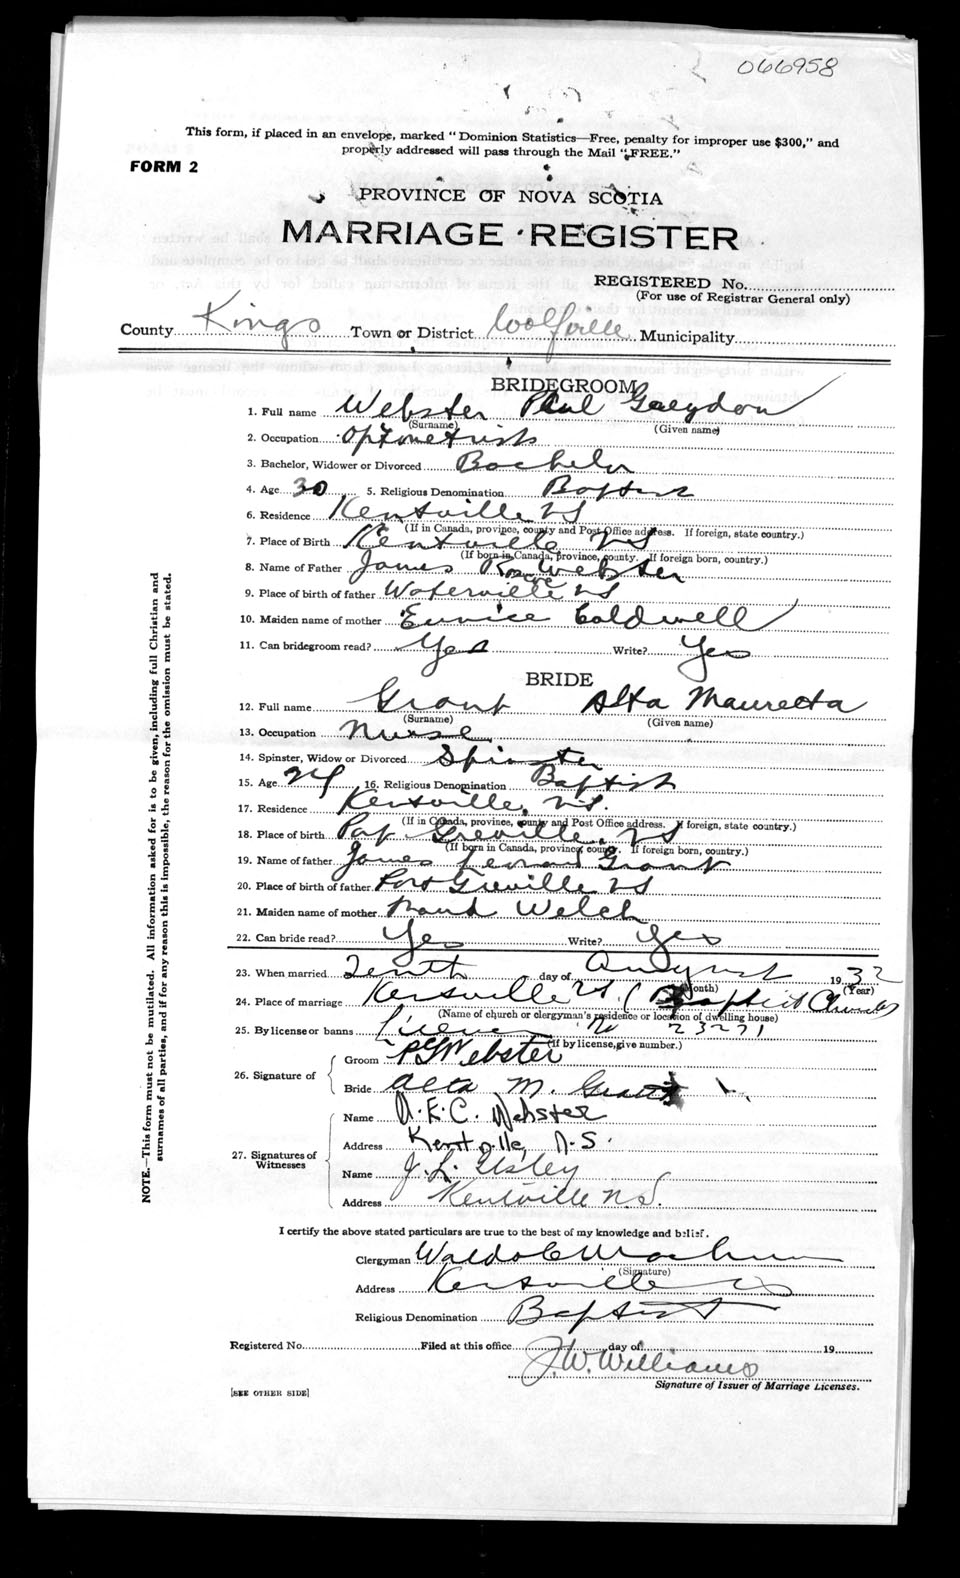 066958
This form, if placed in an envelope, marked "Dominion Statistics—Free, penalty for improper use $300," and
properly addressed will pass through the Mail "FREE."
FORM 2
PROVINCE OF NOVA SCOTIA
MARRIAGE REGISTER
REGISTERED No.
(For use of Registrar General only)
County Kings Town or District Wolfville Municipality
BRIDEGROOM
1. Full name Webster Paul Greydon
(Surname) (Given name)
2. Occupation Optometrist
3. Bachelor, Widower or Divorced Bachelor
4. Age 30 5. Religious Denomination Baptist
6. Residence Kentville NS
(If in Canada, province, county and Post Office address. If foreign, state country.)
7. Place of Birth Kentville NS
(If born in Canada, province, county. If foreign born, country.)
8. Name of Father James Webster
9. Place of birth of father Waterville NS
10. Maiden name of mother Eunice Caldwell
11. Can bridegroom read? Yes Write? Yes
BRIDE
12. Full name Grant Alta Mauretta
(Surname) (Given name)
13. Occupation Nurse
14. Spinster, Widow or Divorced Spinster
15. Age 24 16. Religious Denomination Baptist
17. Residence Kentville, N.S.
(If in Canada, province, county and Post Office address. If foreign, state country.)
18. Place of birth Port Greville, NS
(If born in Canada, province, county. If foreign born, country.)
19. Name of father James Grant
20. Place of birth of father Port Greville NS
21. Maiden name of mother Maud Welch
22. Can bride read? Yes Write? Yes
23. When married Tenth day of August 1932
(Month) (Year)
24. Place of marriage Kentville NS (Baptist Church)
(Name of church or clergyman's residence or location of dwelling house)
25. By license or banns License No 23271
(If by license, give number.)
26. Signature of
Groom P G Webster
Bride Alta M. Grant
27. Signatures of Witnesses
Name E.C. Webster
Address Kentville, N.S.
Name J. L. Ilsley
Address Kentville N.S.
I certify the above stated particulars are true to the best of my knowledge and belief.
Clergyman Waldo C Machum
(Signature)
Address Kentville NS
Religious Denomination Baptist
Registered No. Filed at this office day of 19
J.W. Williams
Signature of Issuer of Marriage Licenses.
[SEE OTHER SIDE]
NOTE.—This form must not be mutilated. All information asked for is to be given, including full Christian and
surnames of all parties, and if for any reason this is impossible, the reason for the omission must be stated.